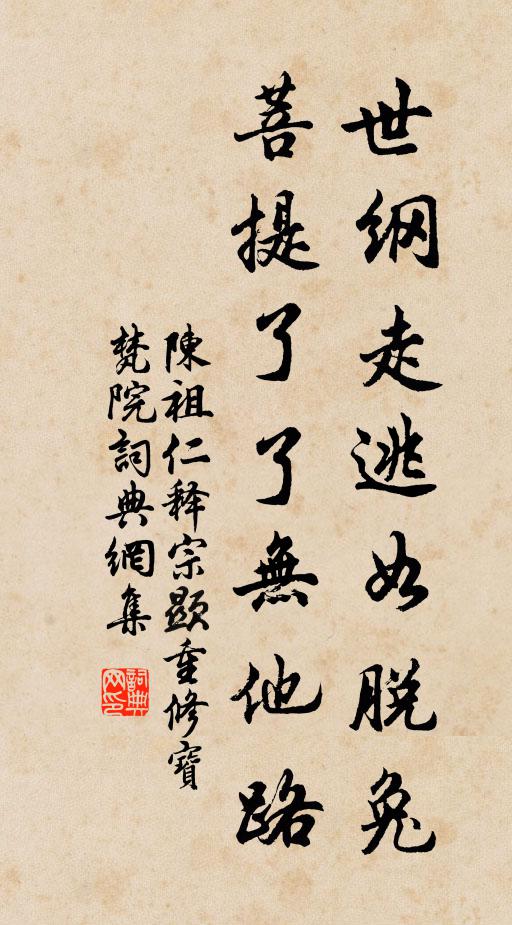 世纲走逃如脱兔
菩提了了無他路
陳祖仁释宗顯重修寶
梵院詞典網集
詞典
网印